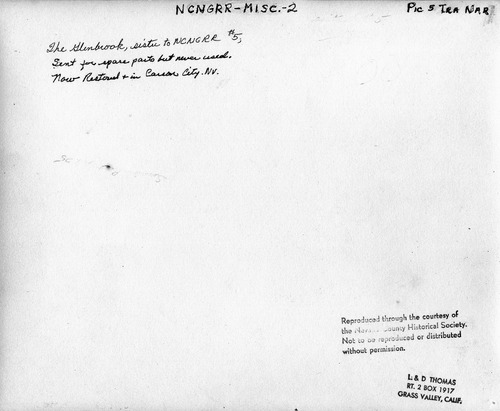 NCNGRR-MISC.-2
Pic 5 Tra Nar
The Glenbrook, sister to NCNGRR #5,
Sent for spare parts but never used.
Now Restored & in Carson City. NV.
Reproduced through the courtesy of
the Nevada County Historical Society.
Not to be reproduced or distributed
without permission.
L & D THOMAS
RT. 2 BOX 1917
GRASS VALLEY, CALIF.